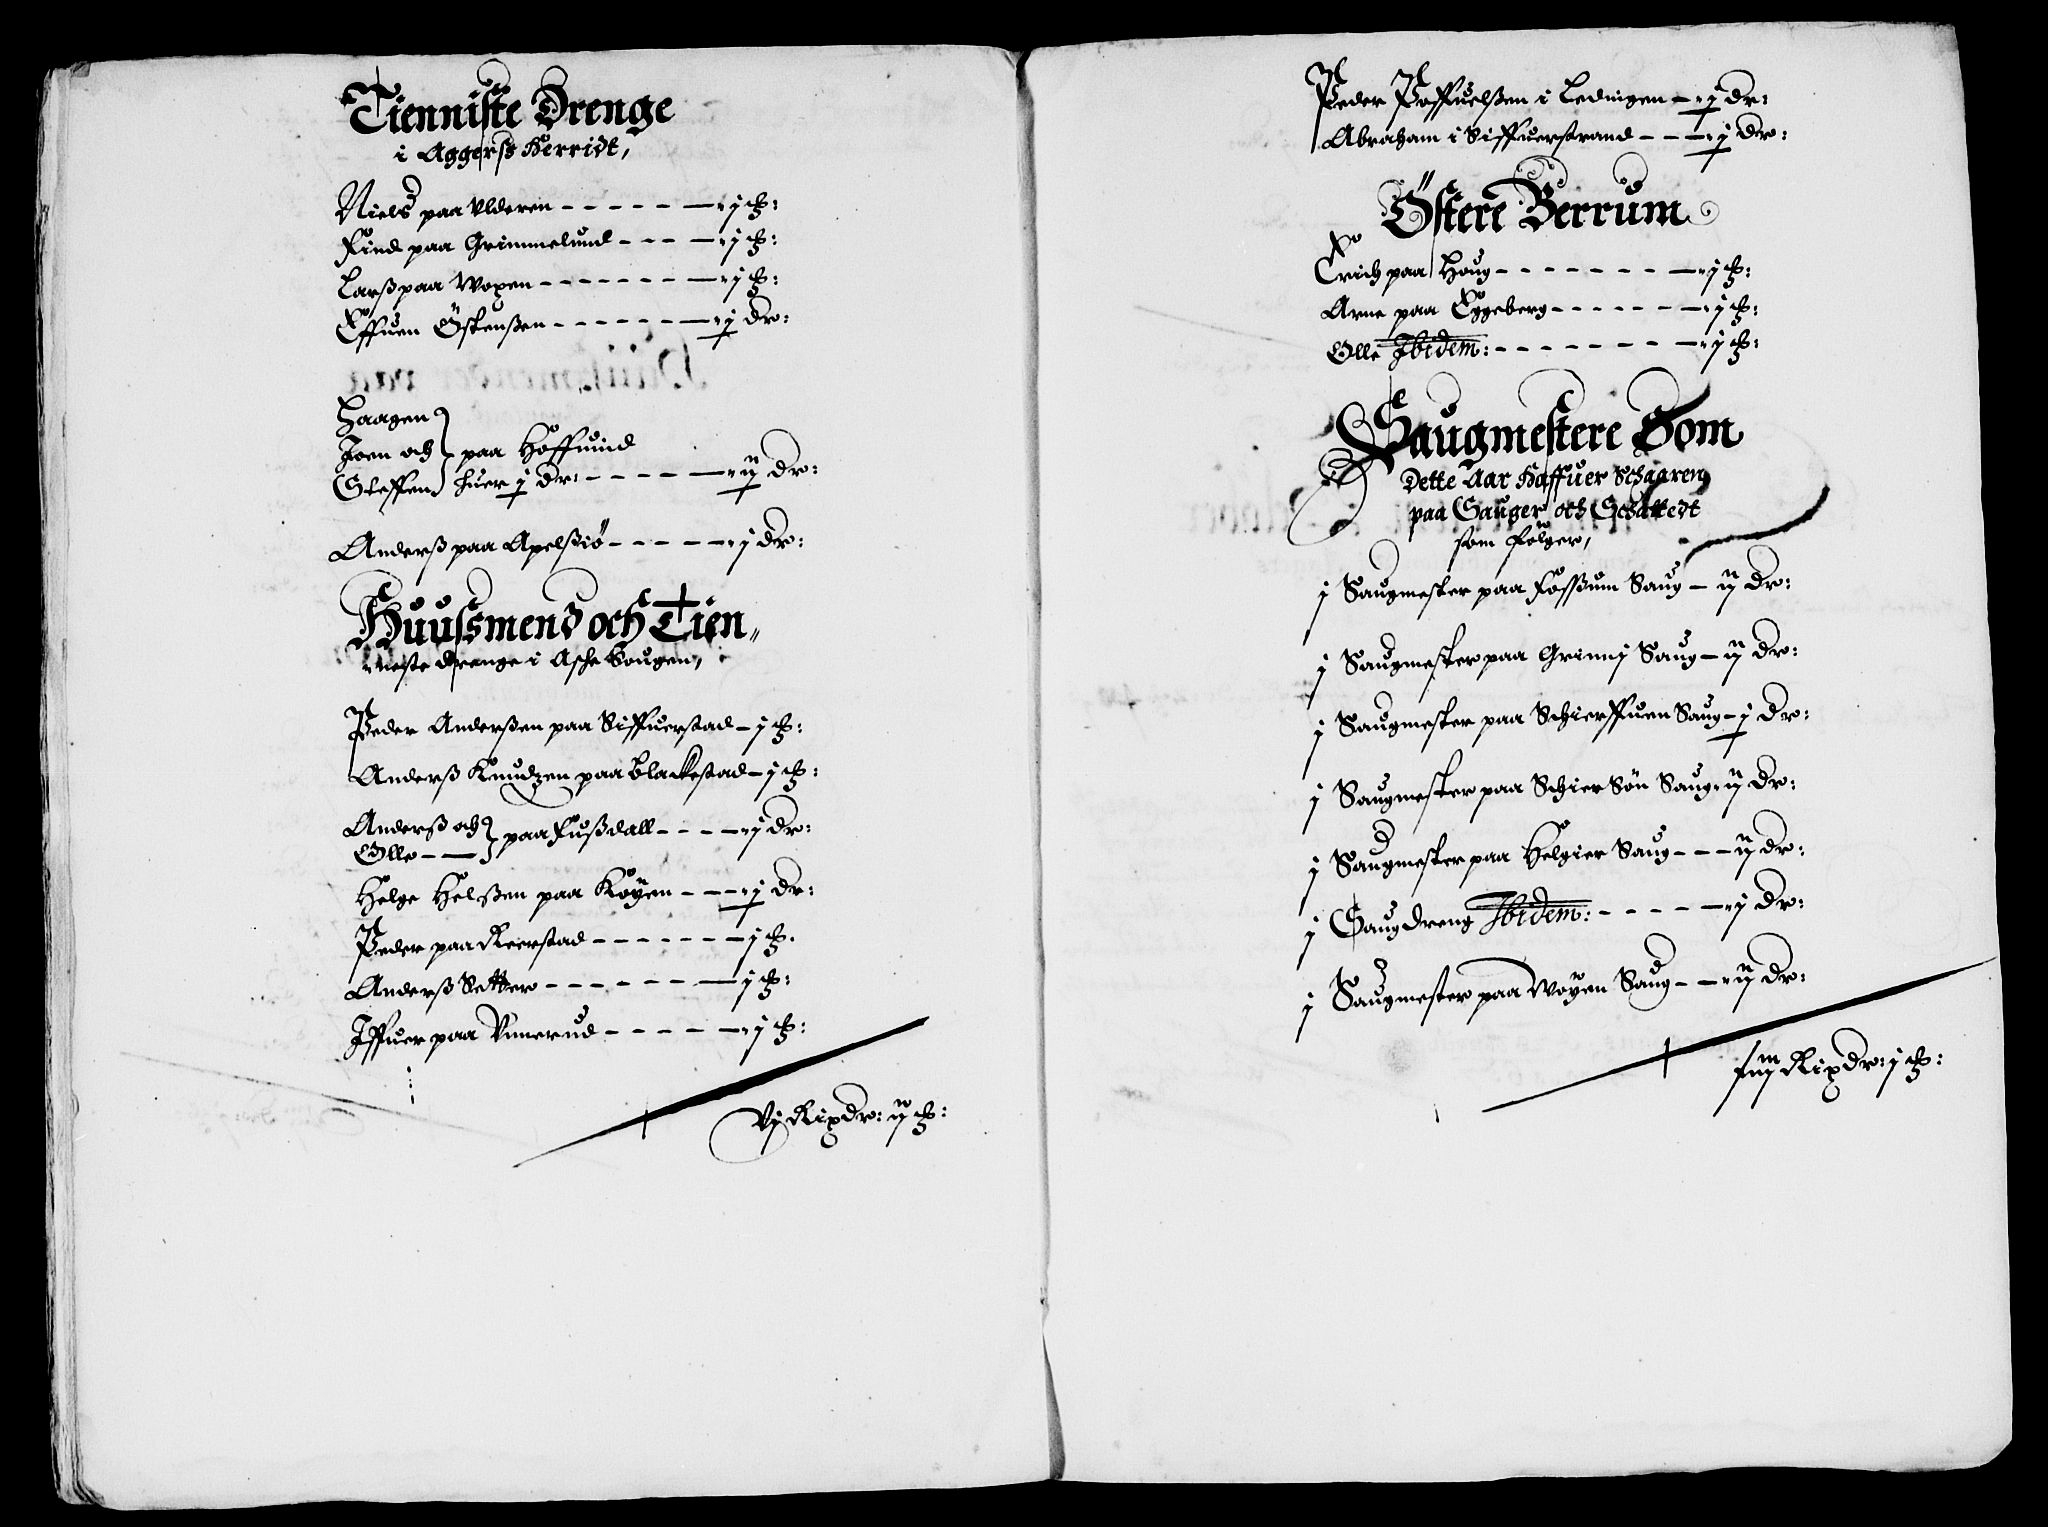 Tienniste Drenge
i Aggersß Herridt,
Niels paa Ulderen - - - - - j ₰:
Find paa Grimmelund - - - - j ₰:
Larß paa Woxen - - - - - - - j ₰:
Effuen Östenßen - - - - - - j dr:
Haagen
Joen och } paa Hoffuind
Steffen huer j dr: - - - - - ij dr:
Anderß paa Apelßiö - - - - - j dr:
Huußmend och Tien„
neste drenge i Asche Sougen,
Peder Anderßen paa Siffuerstad - j ₰:
Anderß Knudzen paa Blackestad - j ₰:
Anderß och } paa Fußdall - - - - j dr:
Olle - -
Helge Helßen paa Köyen - - - j dr:
Peder paa Reerstad - - - - - - - j ₰:
Anderß Setter - - - - - - - j ₰:
Iffuer paa Vnnerud - - - - - j ₰:
Vj Rixdr: ij ₰:
Peder Poffuelßen i Ledingen - j dr:
Abraham i Siffuerstrand - - - j dr:
Östere Berrum
Erich paa Houg - - - - - - - - j ₰:
Arne paa Eggeberg - - - - - - j ₰:
Olle Ibidem: - - - - - - - - j ₰:
Saugmestere Som
Dette Aar Haffuer Schaaren
paa Sauger och Schattedt
som fölger,
j Saugmester paa Fossßum Saug - ij dr:
j Saugmester paa Grinnj Saug - ij dr:
j Saugmester paa Schierffuen Saug - j dr:
j Saugmester paa Schier Sön Saug ij dr:
j Saugmester paa Helgier Saug - - - ij dr:
j Saugdreng Ibidem: - - - - - j dr:
j Saugmester paa Woyen Saug - - ij dr:
Rixdr: j ₰: